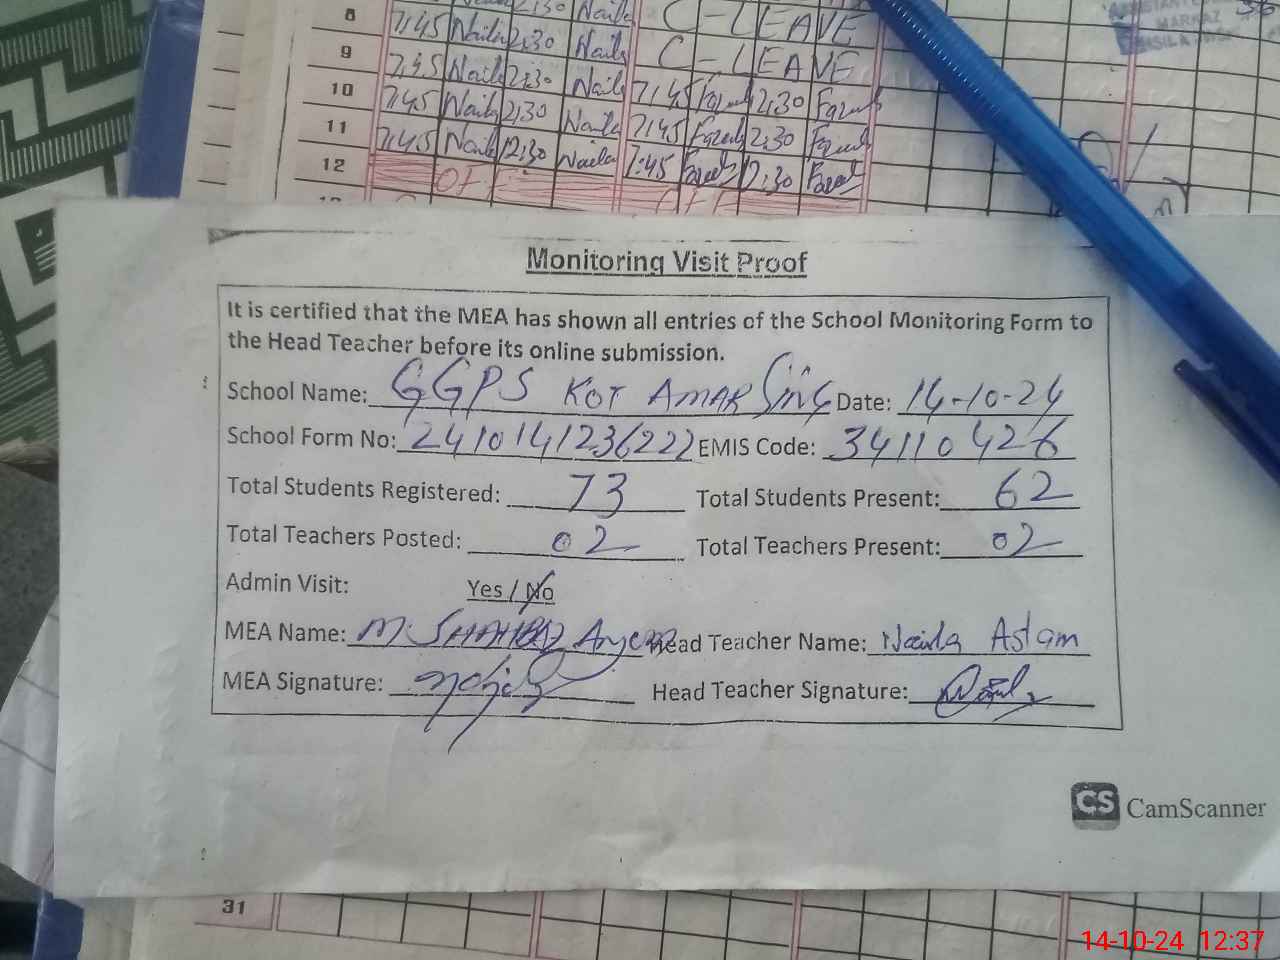 8 7:45 Naila 2:30 Naila C-LEAVE
9 7:45 Naila 2:30 Naila C-LEAVE
10 7:45 Naila 2:30 Naila 7:45 2:30
11 7:45 Naila 2:30 Naila 7:45 2:30
12 7:45 Naila 12:30 Naila 7:45 12:30
OFF OFF
MARKAZ
Monitoring Visit Proof
It is certified that the MEA has shown all entries of the School Monitoring Form to
the Head Teacher before its online submission.
School Name: GGPS KOT AMAR SING Date: 14-10-24
School Form No: 2410141236222 EMIS Code: 34110426
Total Students Registered: 73 Total Students Present: 62
Total Teachers Posted: 02 Total Teachers Present: 02
Admin Visit: Yes / No
MEA Name: M. SHAHBAZ Head Teacher Name: Naila Aslam
MEA Signature: Head Teacher Signature:
CS CamScanner
31
14-10-24 12:37